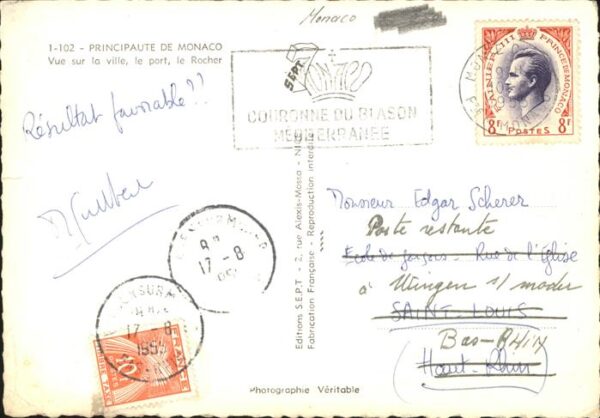 Monaco
1-102 - PRINCIPAUTE DE MONACO
Vue sur la ville, le port, le Rocher
SEPT
COURONNE DU BLASON
MÉDITERRANÉE
RAINIER III PRINCE DE MONACO
8F POSTES 8F
Résultat favorable??
17-8
17-8
1955
FRANCE
10F
Editions S.E.P.T - 2, rue Alexis-Mossa - Nice
Fabrication Française - Reproduction interdite
Monsieur Edgar Scherer
Poste restante
Ecole de garçons - Rue de l'Église
à Wingen s/ moder
SAINT-LOUIS
Bas-RHIN
Haut-Rhin
Photographie Véritable